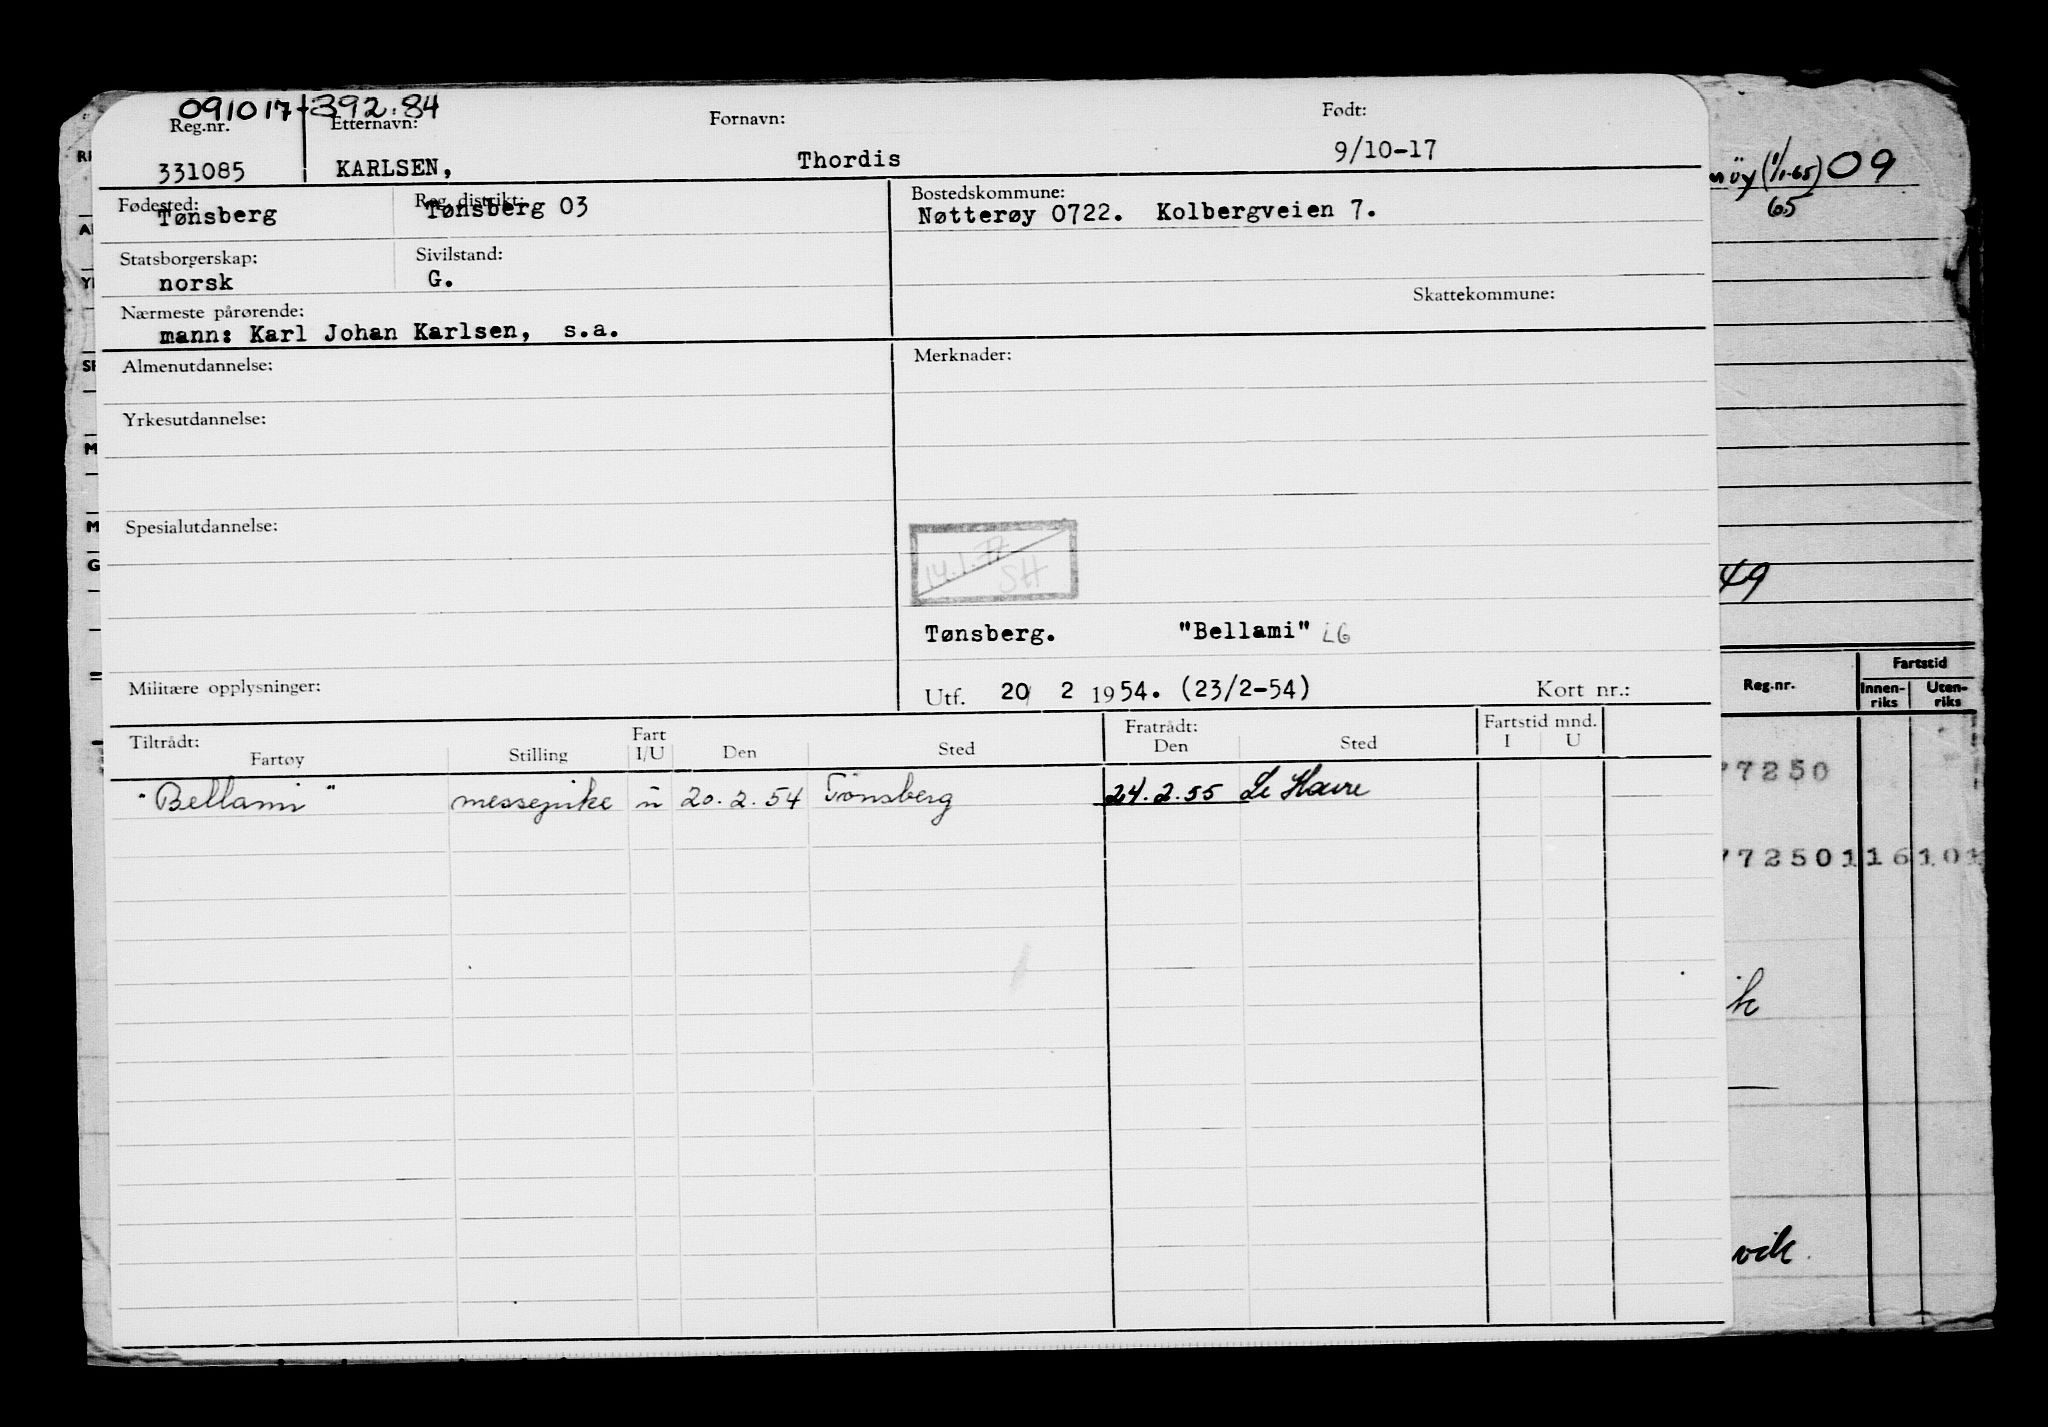 091017+392.84
Reg.nr. Etternavn: Fornavn: Født:
331085 KARLSEN, Thordis 9/10-17
Fødested: Reg. distrikt: Bostedskommune:
Tønsberg Tønsberg 03 Nøtterøy 0722. Kolbergveien 7.
Statsborgerskap: Sivilstand:
norsk G.
Skattekommune:
Nærmeste pårørende:
mann: Karl Johan Karlsen, s.a.
Almenutdannelse: Merknader:
Yrkesutdannelse:
Spesialutdannelse:
14.1.77
SH
Tønsberg. "Bellami" LG
Militære opplysninger: Utf. 20 2 1954. (23/2-54) Kort nr.:
Tiltrådt: Fart Fratrådt: Fartstid mnd.
Fartøy Stilling I/U Den Sted Den Sted I U
"Bellami" messepike u 20.2.54 Tønsberg 24.2.55 Le Havre
øy (1/1-65) 09
65
49
Fartstid
Reg.nr. Innen-riks Uten-riks
77250
772501 16 101
ik
vik.